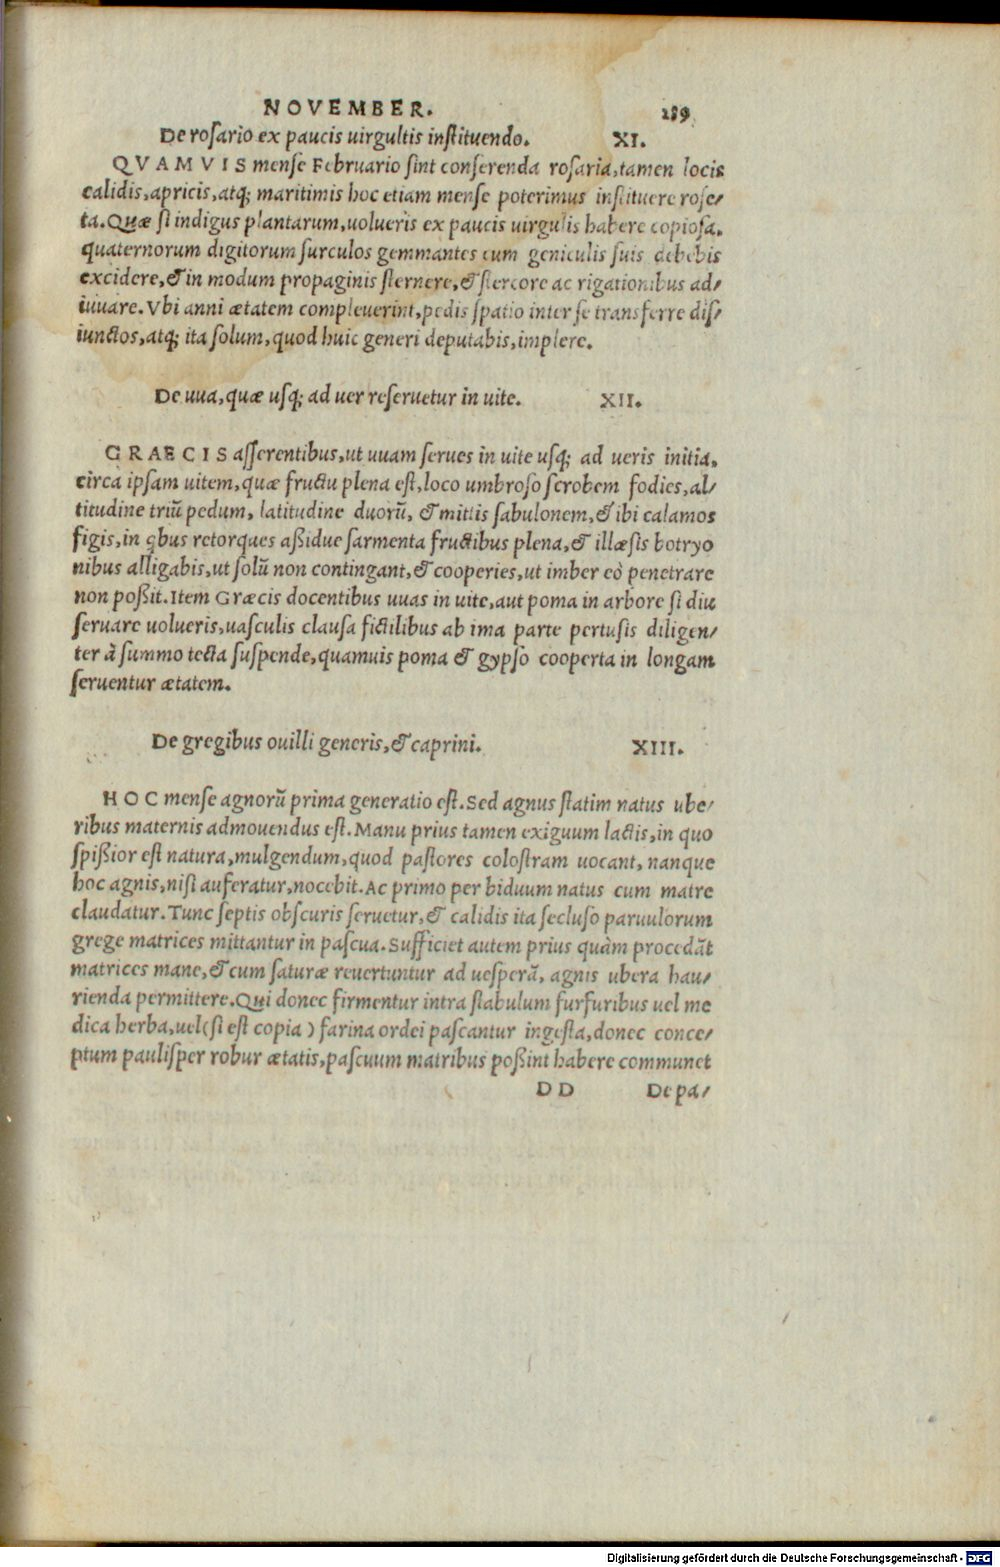 NOVEMBER. 189
De rosario ex paucis uirgultis instituendo. XI.
QVAMVIS mense Februario sint conserenda rosaria, tamen locis
calidis, apricis, atq; maritimis hoc etiam mense poterimus instituere rose/
ta. Quæ si indigus plantarum, uolueris ex paucis uirgulis habere copiosa,
quaternorum digitorum surculos gemmantes cum geniculis suis debebis
excidere, & in modum propaginis sternere, & stercore ac rigationibus ad/
iuuare. Vbi anni ætatem compleuerint, pedis spatio inter se transferre dis/
iunctos, atq; ita solum, quod huic generi deputabis, implere.
De uua, quæ usq; ad uer reseruetur in uite. XII.
GRAECIS asserentibus, ut uuam serues in uite usq; ad ueris initia,
circa ipsam uitem, quæ fructu plena est, loco umbroso scrobem fodies, al/
titudine triũ pedum, latitudine duorũ, & mittis sabulonem, & ibi calamos
figis, in qbus retorques aßidue sarmenta fructibus plena, & illæsis botryo
nibus alligabis, ut solũ non contingant, & cooperies, ut imber eò penetrare
non poßit. Item Græcis docentibus uuas in uite, aut poma in arbore si diu
seruare uolueris, uasculis clausa fictilibus ab ima parte pertusis diligen/
ter à summo tecta suspende, quamuis poma & gypso cooperta in longam
seruentur ætatem.
De gregibus ouilli generis, & caprini. XIII.
HOC mense agnorũ prima generatio est. Sed agnus statim natus ube/
ribus maternis admouendus est. Manu prius tamen exiguum lactis, in quo
spißior est natura, mulgendum, quod pastores colostram uocant, nanque
hoc agnis, nisi auferatur, nocebit. Ac primo per biduum natus cum matre
claudatur. Tunc septis obscuris seruetur, & calidis ita secluso paruulorum
grege matrices mittantur in pascua. Sufficiet autem prius quàm procedãt
matrices mane, & cum saturæ reuertuntur ad uesperã, agnis ubera hau/
rienda permittere. Qui donec firmentur intra stabulum furfuribus uel me
dica herba, uel (si est copia) farina ordei pascantur ingesta, donec conce/
ptum paulisper robur ætatis, pascuum matribus poßint habere communet
DD Depa/
Digitalisierung gefördert durch die Deutsche Forschungsgemeinschaft - DFG